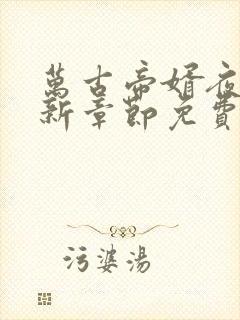 萬古帝婿夜
新章節免費
污婆湯